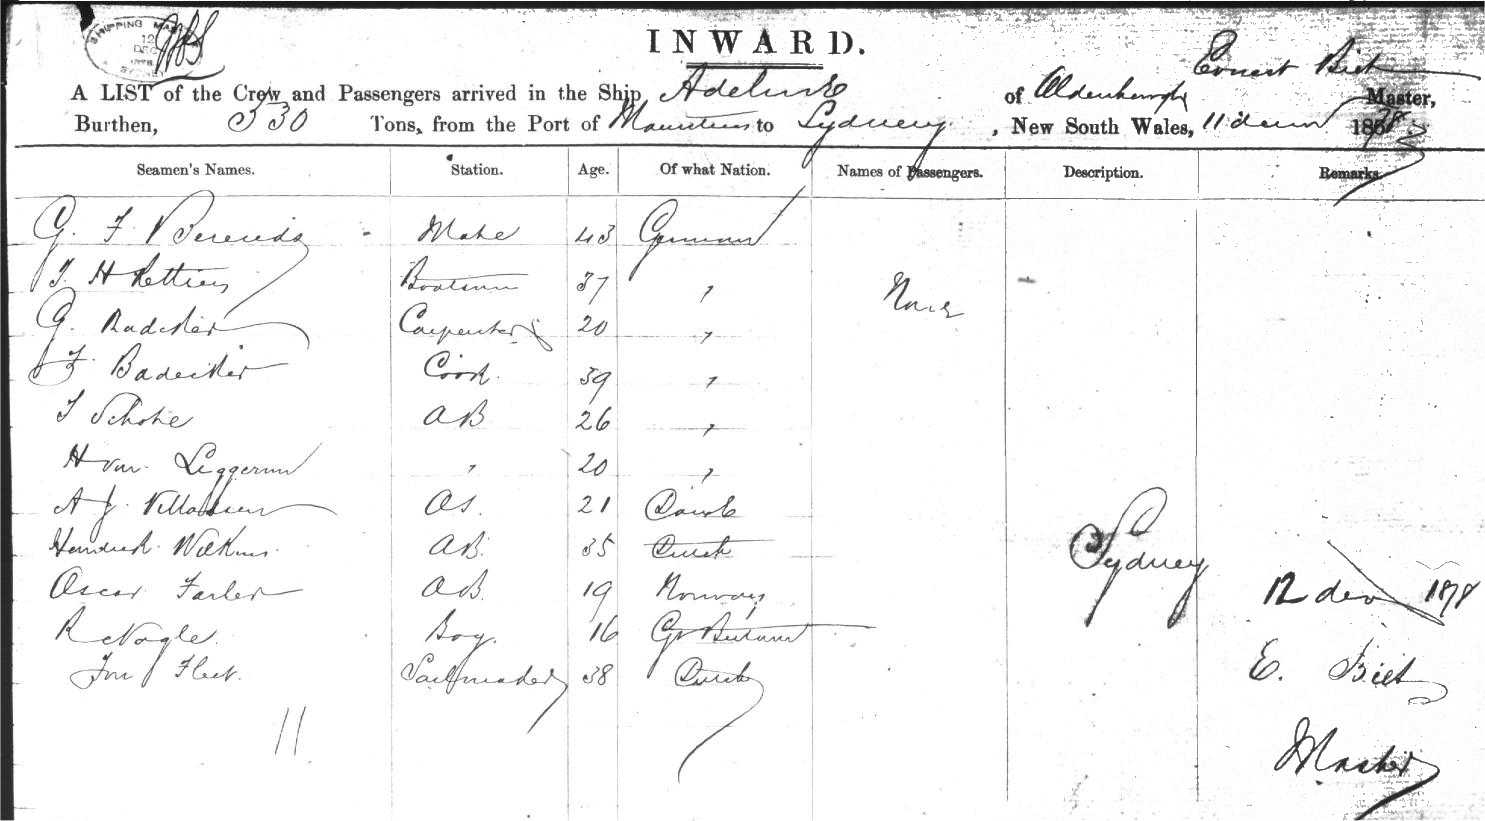 SHIPPING MASTER
12
DEC
SYDNEY
INWARD.
A LIST of the Crew and Passengers arrived in the Ship Adeline of Oldenburgh Ernest Biet Master,
Burthen, 330 Tons, from the Port of Mauritius to Sydney, New South Wales, 11 decem 1878
Seamen's Names. Station. Age. Of what Nation. Names of Passengers. Description. Remarks.
G. F. Berends Mate 43 German
H Boatsman 37 "
G. Carpenter 20 " None
F. Badecker Cook 39 "
AB 26 "
H van " 20 "
A J. OS. 21 Dansk
Hendrick Wilkins AB. 35 Dutch
Oscar Farler AB. 19 Norway
R Nagle Boy. 16 Gt Britain
Fleet. Sailmaker 38 Dutch
11
Sydney
12 dec 1878
E. Biet
Master